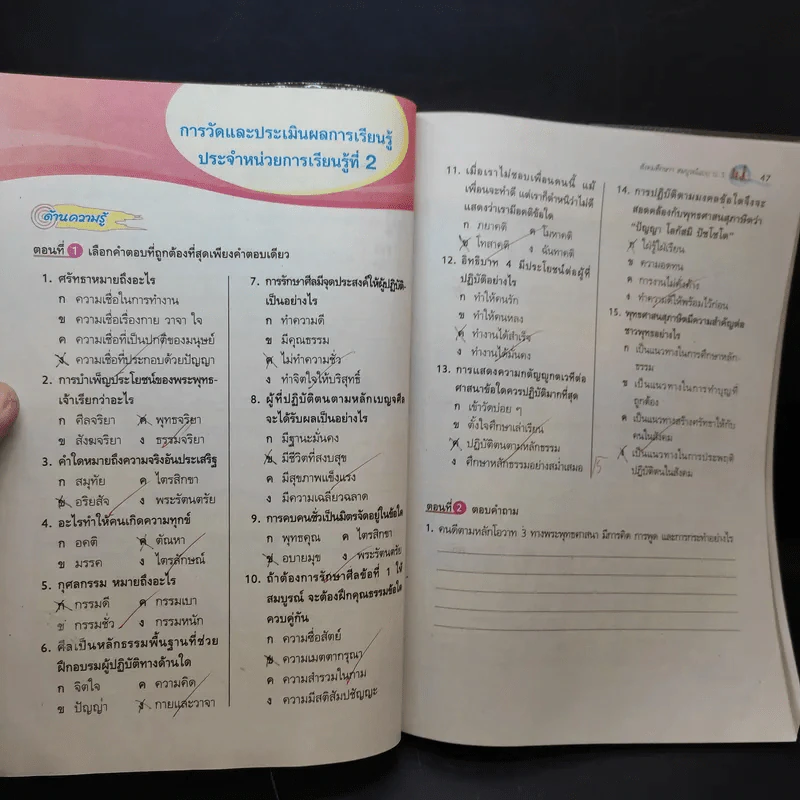 การวัดและประเมินผลการเรียนรู้
ประจำหน่วยการเรียนรู้ที่ 2
ด้านความรู้
ตอนที่ 1 เลือกคำตอบที่ถูกต้องที่สุดเพียงคำตอบเดียว
1. ศรัทธาหมายถึงอะไร
ก ความเชื่อในการทำงาน
ข ความเชื่อเรื่องกาย วาจา ใจ
ค ความเชื่อที่เป็นปกติของมนุษย์
ง ความเชื่อที่ประกอบด้วยปัญญา
2. การบำเพ็ญประโยชน์ของพระพุทธ-
เจ้าเรียกว่าอะไร
ก ศีลจริยา ค พุทธจริยา
ข สังฆจริยา ง ธรรมจริยา
3. คำใดหมายถึงความจริงอันประเสริฐ
ก สมุทัย ค ไตรสิกขา
ข อริยสัจ ง พระรัตนตรัย
4. อะไรทำให้คนเกิดความทุกข์
ก อคติ ค ตัณหา
ข มรรค ง ไตรลักษณ์
5. กุศลกรรม หมายถึงอะไร
ก กรรมดี ค กรรมเบา
ข กรรมชั่ว ง กรรมหนัก
6. ศีลเป็นหลักธรรมพื้นฐานที่ช่วย
ฝึกอบรมผู้ปฏิบัติทางด้านใด
ก จิตใจ ค ความคิด
ข ปัญญา ง กายและวาจา
7. การรักษาศีลมีจุดประสงค์ให้ผู้ปฏิบัติ-
เป็นอย่างไร
ก ทำความดี
ข มีคุณธรรม
ค ไม่ทำความชั่ว
ง ทำจิตใจให้บริสุทธิ์
8. ผู้ที่ปฏิบัติตนตามหลักเบญจศีล
จะได้รับผลเป็นอย่างไร
ก มีฐานะมั่นคง
ข มีชีวิตที่สงบสุข
ค มีสุขภาพแข็งแรง
ง มีความเฉลียวฉลาด
9. การคบคนชั่วเป็นมิตรจัดอยู่ในข้อใด
ก พุทธคุณ ค ไตรสิกขา
ข อบายมุข ง พระรัตนตรัย
10. ถ้าต้องการรักษาศีลข้อที่ 1 ให้
สมบูรณ์ จะต้องฝึกคุณธรรมข้อใด
ควบคู่กัน
ก ความซื่อสัตย์
ข ความเมตตากรุณา
ค ความสำรวมในกาม
ง ความมีสติสัมปชัญญะ
47
11. เมื่อเราไม่ชอบเพื่อนคนนี้ แม้
เพื่อนจะทำดี แต่เราก็ตำหนิว่าไม่ดี
แสดงว่าเรามีอคติข้อใด
ก ภยาคติ ค โมหาคติ
ข โทสาคติ ง ฉันทาคติ
12. อิทธิบาท 4 มีประโยชน์ต่อผู้ที่
ปฏิบัติอย่างไร
ก ทำให้คนรัก
ข ทำให้คนหลง
ค ทำงานได้สำเร็จ
ง ทำงานได้มั่นคง
13. การแสดงความกตัญญูกตเวทีต่อ
ศาสนาข้อใดควรปฏิบัติมากที่สุด
ก เข้าวัดบ่อย ๆ
ข ตั้งใจศึกษาเล่าเรียน
ค ปฏิบัติตนตามหลักธรรม
ง ศึกษาหลักธรรมอย่างสม่ำเสมอ
14. การปฏิบัติตามมงคลข้อใดจึงจะ
สอดคล้องกับพุทธศาสนสุภาษิตว่า
"ปัญญา โลกัสมิ ปัชโชโต"
ก ไม่รู้ไม่เรียน
ข ความอดทน
ค การงานไม่คั่งค้าง
ง ทำความดีให้พร้อมไว้ก่อน
15. พุทธศาสนสุภาษิตมีความสำคัญต่อ
ชาวพุทธอย่างไร
ก เป็นแนวทางในการศึกษาหลัก-
ธรรม
ข เป็นแนวทางในการทำบุญที่
ถูกต้อง
ค เป็นแนวทางสร้างศรัทธาให้กับ
คนในสังคม
ง เป็นแนวทางในการประพฤติ
ปฏิบัติตนในสังคม
15
ตอนที่ 2 ตอบคำถาม
1. คนดีตามหลักโอวาท 3 ทางพระพุทธศาสนา มีการคิด การพูด และการกระทำอย่างไร